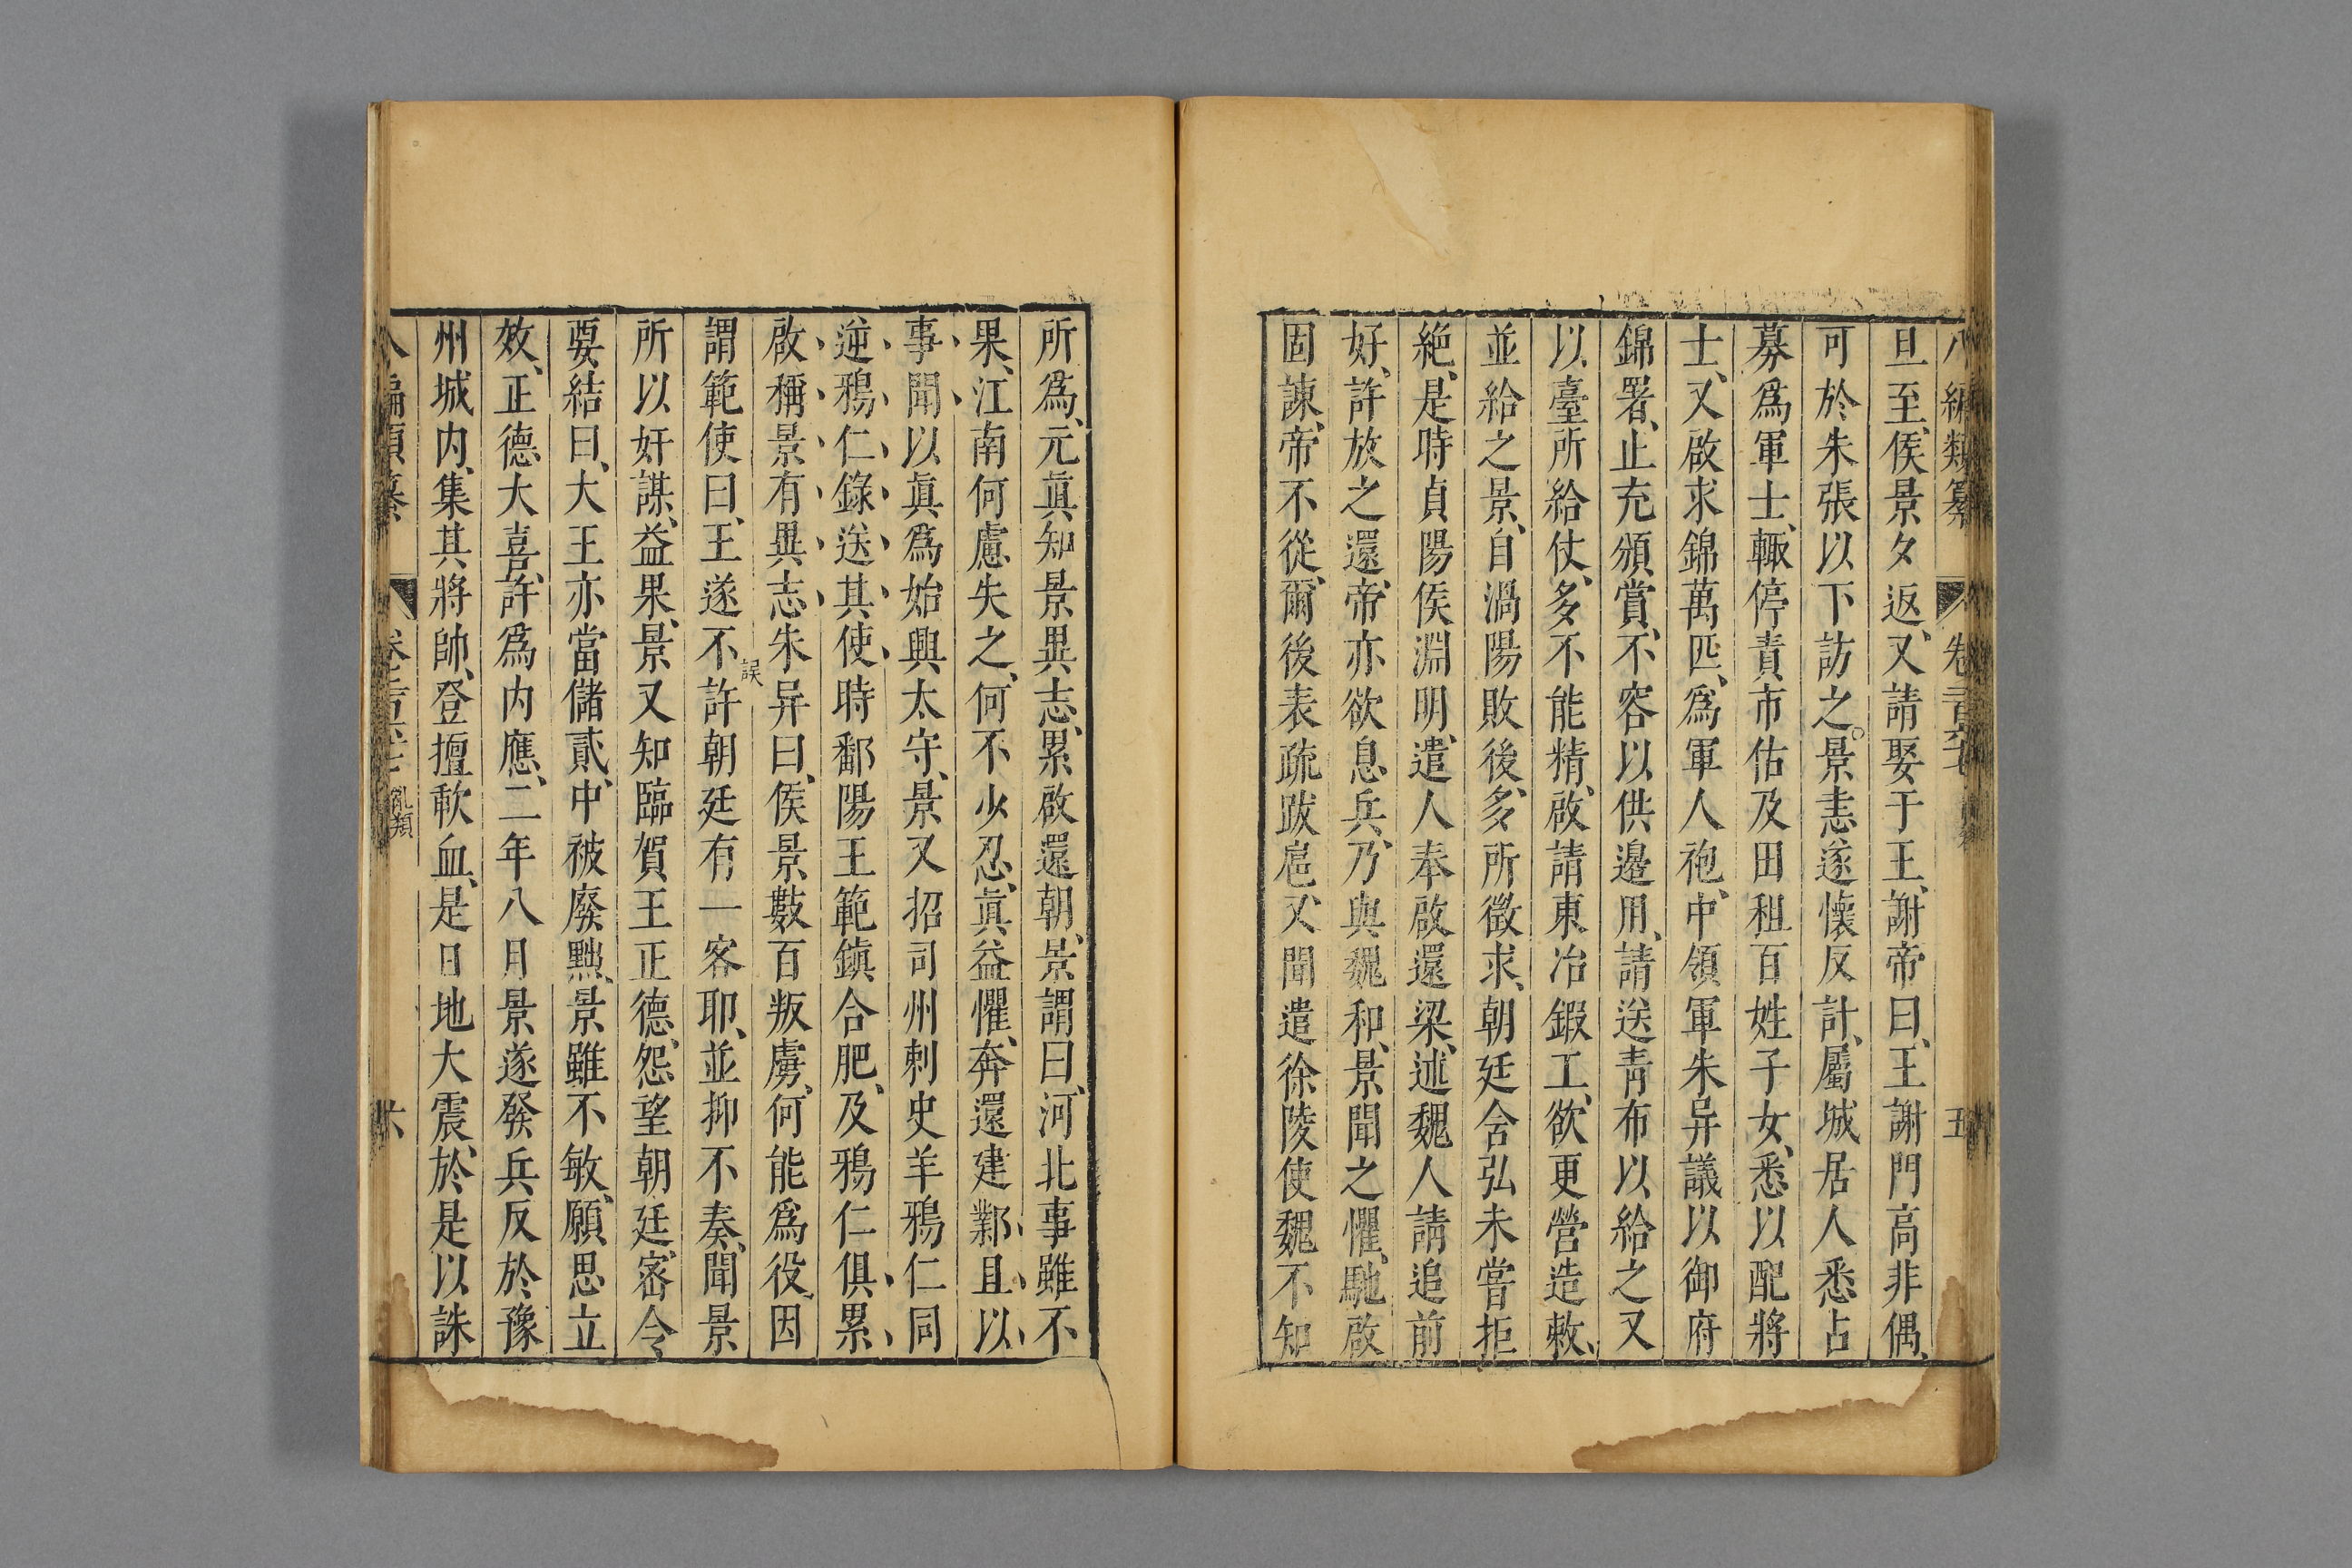 八編類纂 卷二百六十 五
旦至、侯景夕返、又請娶于王、謝帝曰、王謝門高非偶、
可於朱張以下訪之。景恚遂懷反計、屬城居人悉占
募爲軍士、輙停責市估及田租百姓子女、悉以配將
士、又啟求錦萬匹、爲軍人袍、中領軍朱异議以御府
錦署、止充頒賞、不容以供邊用、請送靑布以給之又
以臺所給仗、多不能精、啟請東冶鍜工、欲更營造敕、
並給之景、自渦陽敗後、多所徵求、朝廷含弘未嘗拒
絶、是時貞陽侯淵明、遣人奉啟還梁、述魏人請追前
好、許放之還、帝亦欲息兵、乃與魏和、景聞之懼、馳啟
固諫、帝不從、爾後表疏跋扈、又聞遣徐陵使魏不知
所爲、元眞知景異志、累啟還朝、景謂曰、河北事雖不
果、江南何慮失之、何不少忍、眞益懼、奔還建鄴、且以
事聞以眞爲始興太守、景又招司州刺史羊鴉仁同
逆、鴉仁錄送其使、時鄱陽王範鎮合肥、及鴉仁俱累
啟稱景有異志、朱异曰、侯景數百叛虜、何能爲役、因
謂範使曰、王遂不許朝廷有一客耶、並抑不奏、聞景
誤
所以奸謀、益果、景又知臨賀王正德、怨望朝廷、密令
要結曰、大王亦當儲貳、中被廢黜、景雖不敏、願思立
效、正德大喜、許爲内應、二年八月景遂發兵反於豫
州城内、集其將帥、登擅歃血、是日地大震、於是以誅
八編類纂 卷二百六十 亂類 六